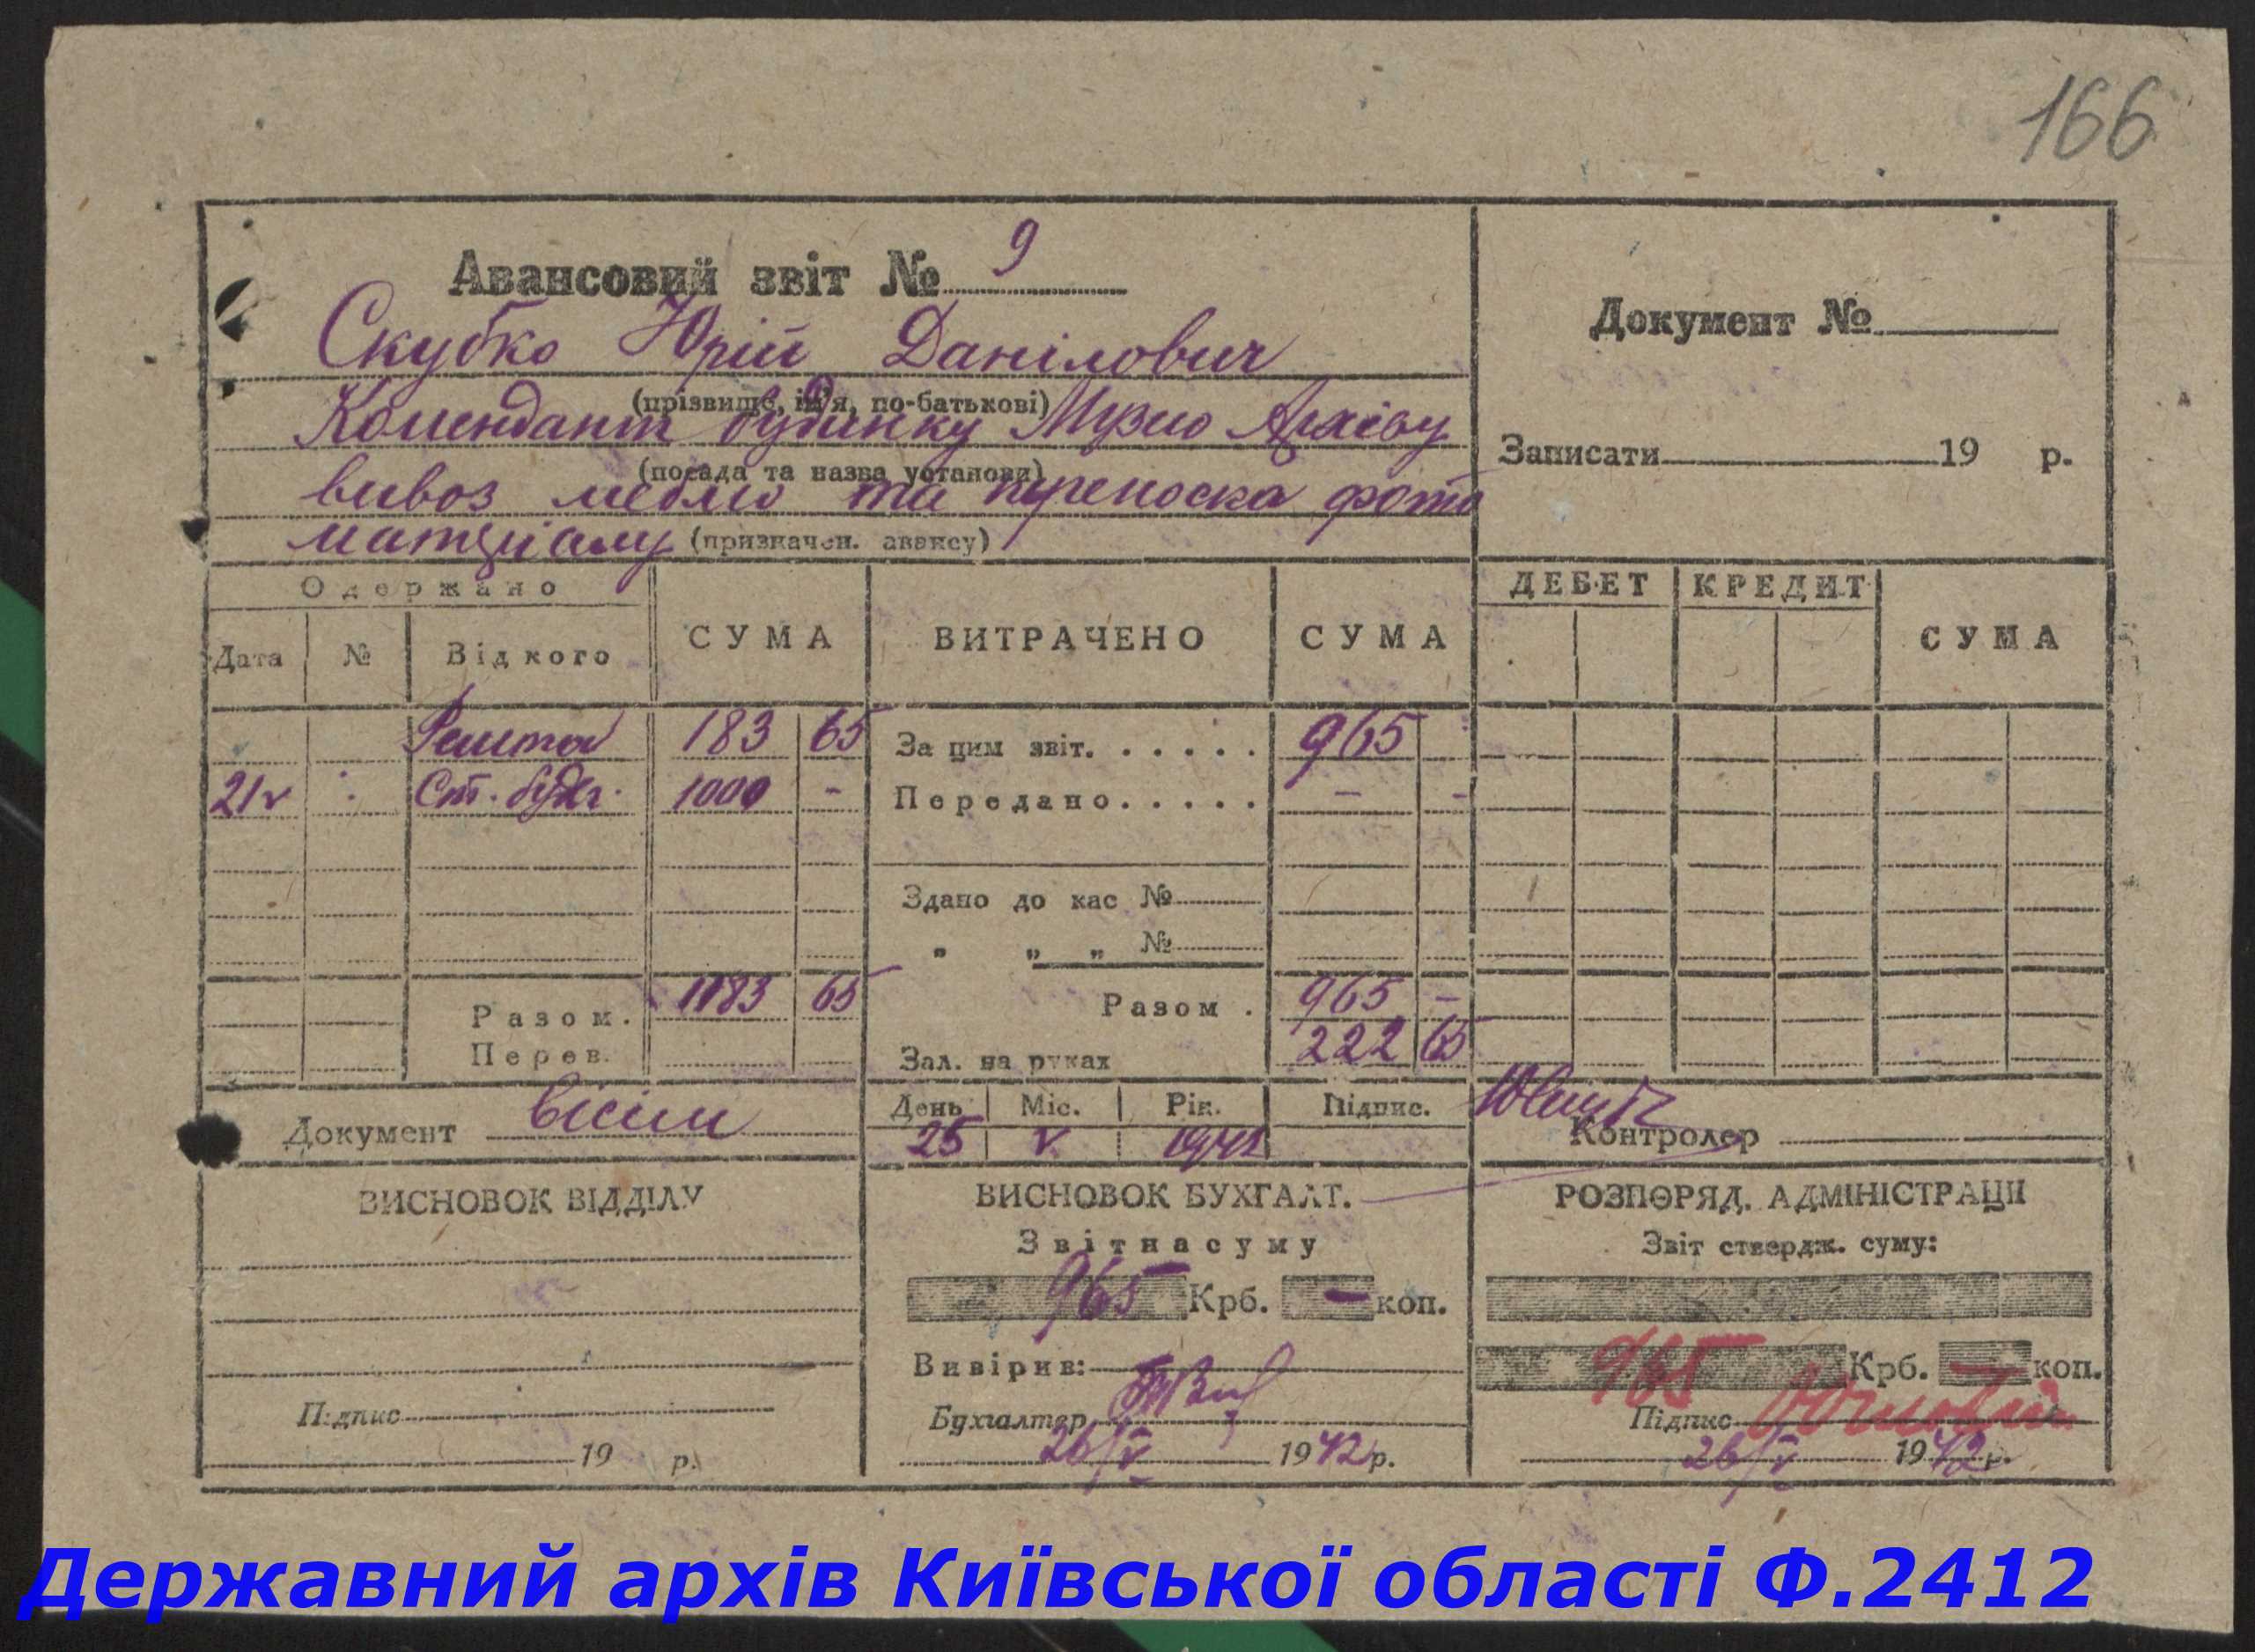 166
Авансовий звіт № 9
Скубко Юрій Данілович
(прізвище, ім'я, по-батькові)
Комендант будинку Музею Архіву
(посада та назва установи)
вивоз меблю та переноска фото
матеріалу (призначен. авансу)
Документ №
Записати 19 р.
Одержано
Дата № Від кого СУМА ВИТРАЧЕНО СУМА
ДЕБЕТ КРЕДИТ СУМА
Решта 183 65 За цим звіт. . . . . . 965
21 V Ст. бухг. 1000 - Передано. . . . . - -
Здано до кас №
„ „ „ №
Разом. 1183 65 Разом . 965 -
Перев. Зал. на руках 222 65
Документ вісім
День Міс. Рік. Підпис.
25 V 1942
Контролер
ВИСНОВОК ВІДДІЛУ
Підпис
19 р.
ВИСНОВОК БУХГАЛТ.
Звіт на суму
965 Крб. - коп.
Вивірив:
Бухгалтер
26/V 1942 р.
РОЗПОРЯД. АДМІНІСТРАЦІІ
Звіт ствердж. суму:
965 Крб. — коп.
Підпис
26/V 1942 р.
Державний архів Київської області Ф.2412